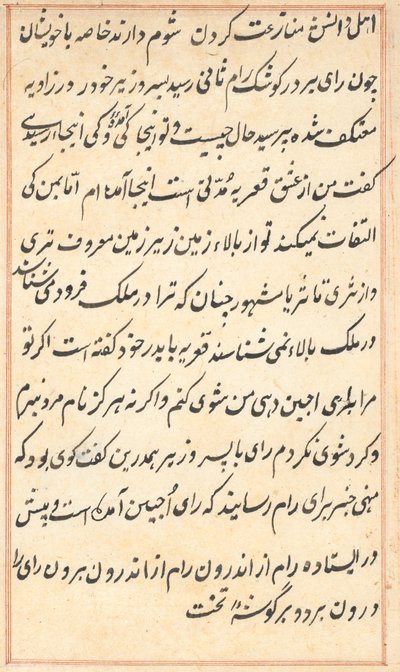 اهل دانش منازعت کردن شوم دارند خاصه با خویشان
چون رای بر در کوشک رام ثانی رسید پسر وزیر خود در زاویه
معتکف شده پرسید حال چیست و تو اینجا کی آمدهٔ و کی اینجا رسیدی
گفت من از عشق قعریه مدتی است اینجا آمده ام اما بمن کی
التفات نمیکند تو از بالاء زمین زیر زمین معروف تری
و از ثری تا ثریا مشهور چنان که ترا در ملک فرود می شناسند
در ملک بالاء نمی شناسند قعریه با پدر خود گفته است اگر تو
مرا برای اجین دهی من شوی کنم و اگر نه هرگز نام مرد نبرم
و گرد شوی نگردم رای با پسر وزیر همدرین گفت کوی بود که
منهی خبر برای رام رسانید که رای اجین آمده است و پیش
در ایستاده رام از اندرون رام از اندرون برون رای را
درون برد و بر گوشهٔ تخت